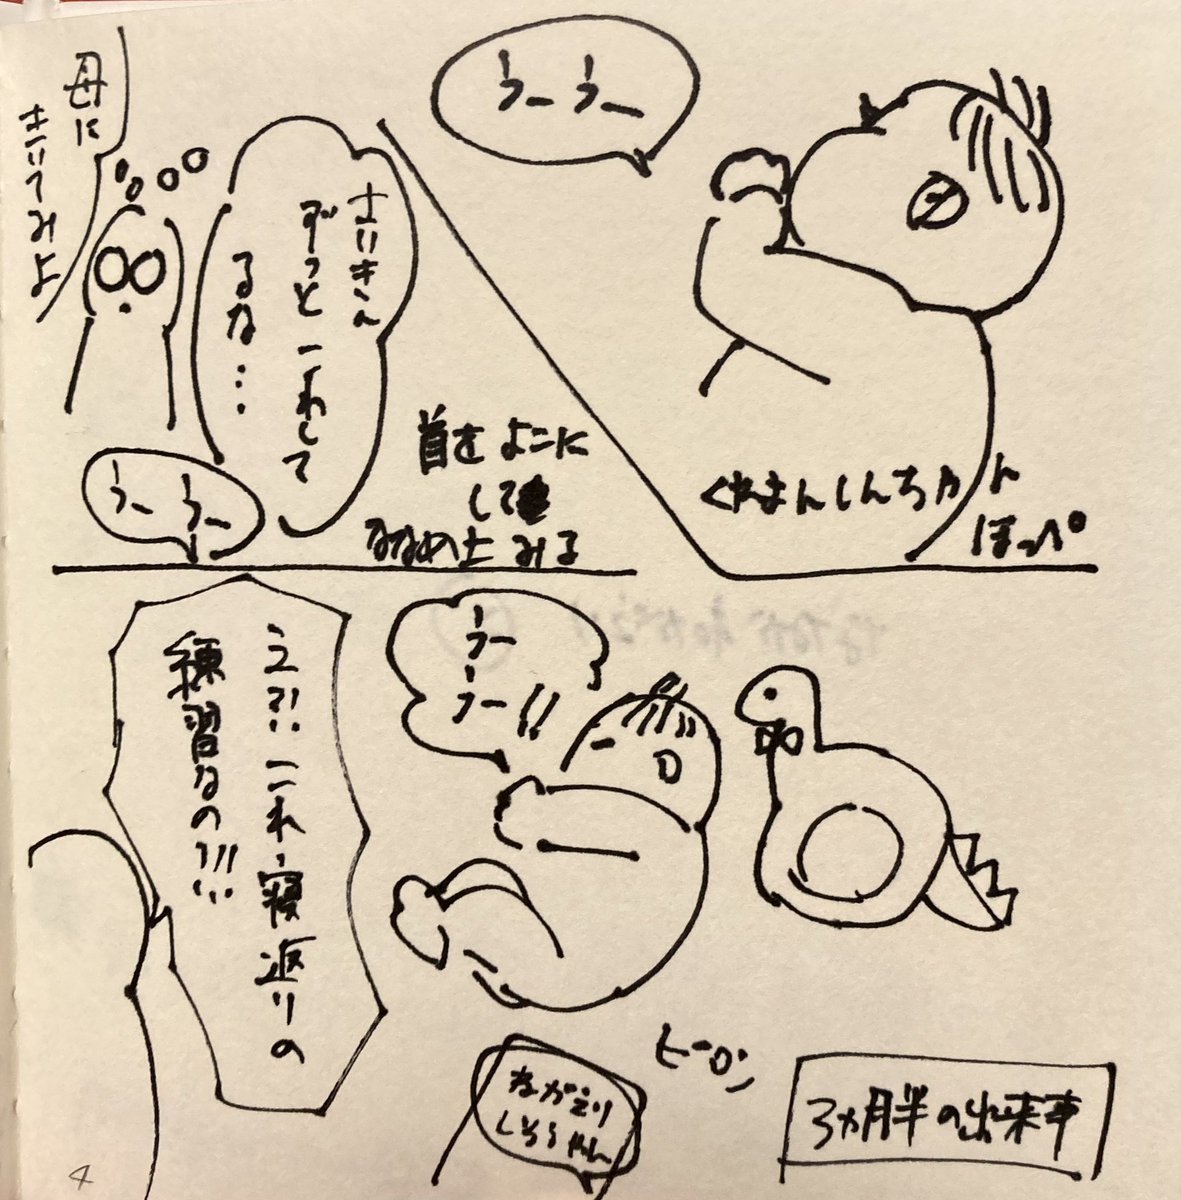 うーうー
くれよんしんちゃん
ほっぺ
首をよこに
して
ななめ上みる
さいきん
ずっとこれして
るな…
うーうー
母に
きいてみよ
うー
うー!!
え?!これ寝返りの
練習なの!!!
ヒーロン
ねがえり
しそうやん
3ヵ月半の出来事
4